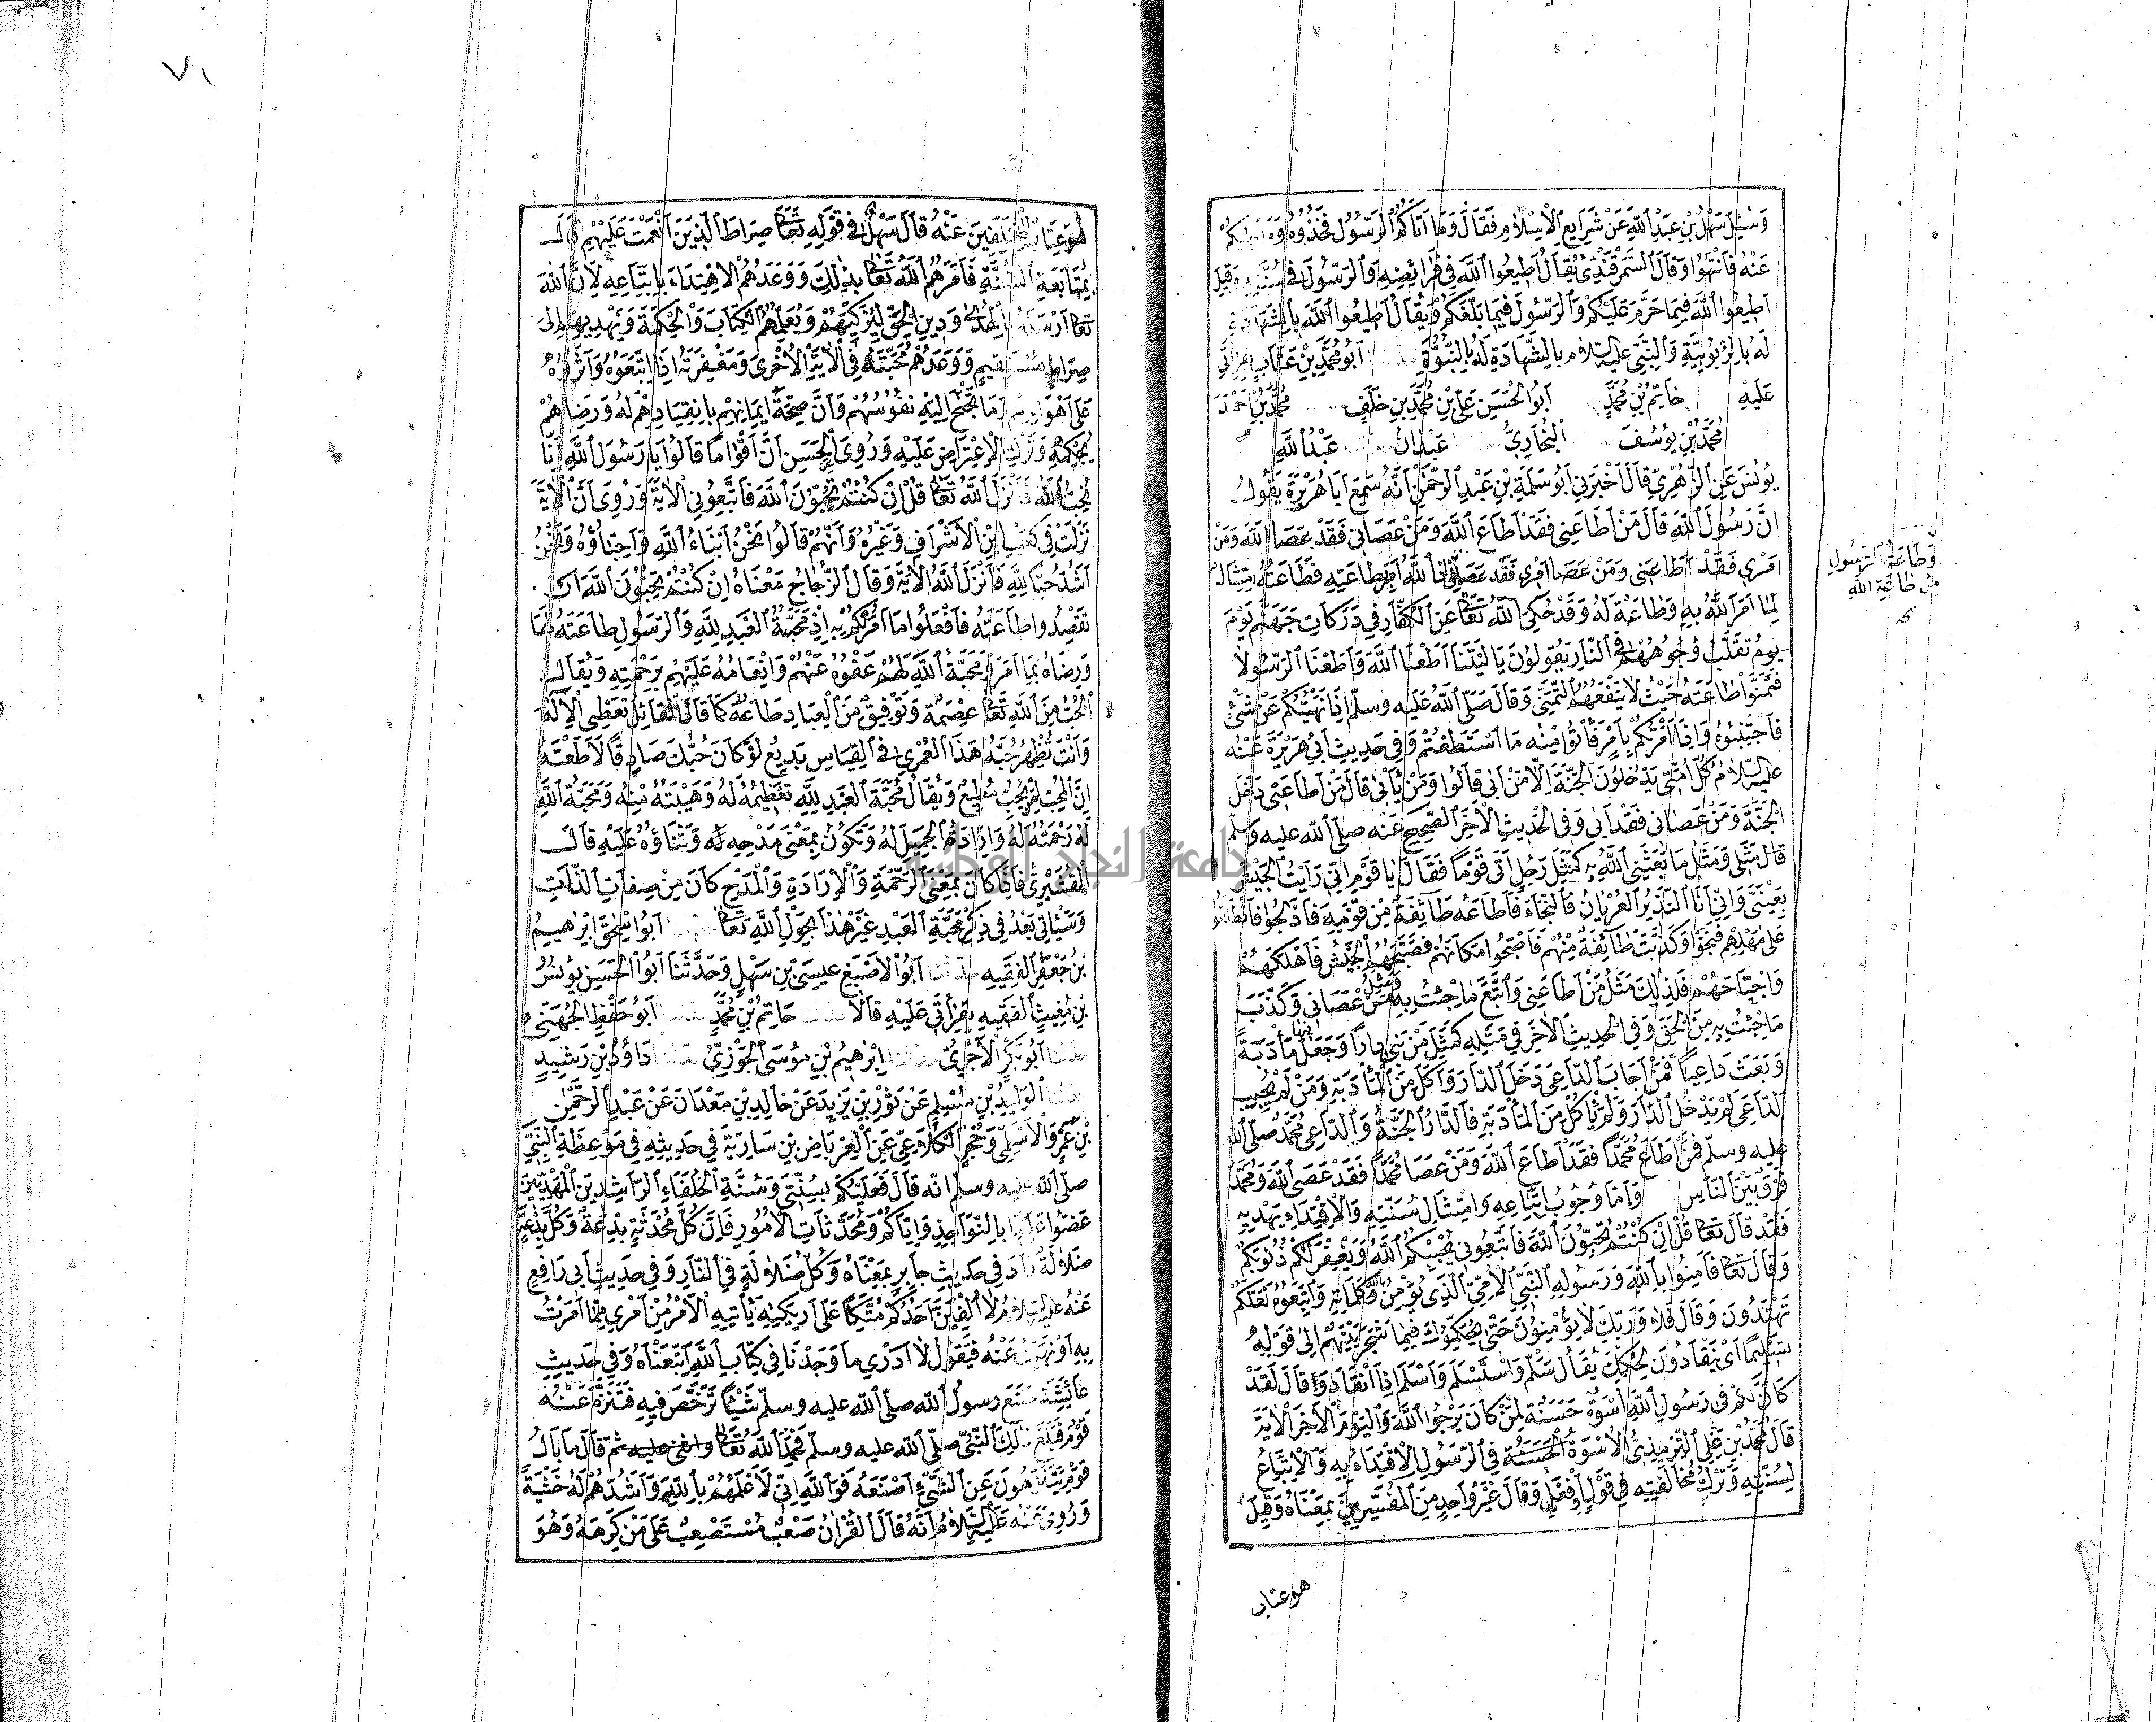 وَسُئِلَ سَهْلُ بْنُ عَبْدِ اللَّهِ عَنْ شَرَايِعِ الْاِسْلَامِ فَقَالَ وَمَا اٰتَاكُمُ الرَّسُولُ فَخُذُوهُ وَمَا نَهٰيكُمْ
عَنْهُ فَانْتَهُوا وَقَالَ السَّمَرْقَنْدِيُّ يُقَالُ اَطِيعُوا اللَّهَ فِي فَرَائِضِهِ وَالرَّسُولَ فِي سُنَّتِهِ وَقِيلَ
اَطِيعُوا اللَّهَ فِيمَا حَرَّمَ عَلَيْكُمْ وَالرَّسُولَ فِيمَا بَلَّغَكُمْ وَيُقَالُ اَطِيعُوا اللَّهَ بِالشَّهَادَةِ
لَهُ بِالرُّبُوبِيَّةِ وَالنَّبِيَّ عليه السّلام بِالشَّهَادَةِ لَهُ بِالنُّبُوَّةِ اَبُو مُحَمَّدِ بْنُ عَتَّابٍ بِقِرَاتِي
عَلَيْهِ حَاتِمُ بْنُ مُحَمَّدٍ اَبُو الْحَسَنِ عَلِيُّ بْنُ مُحَمَّدِ بْنِ خَلَفٍ مُحَمَّدُ بْنُ اَحْمَدَ
مُحَمَّدُ بْنُ يُوسُفَ الْبُخَارِيُّ عَبْدَانُ عَبْدُ اللَّهِ
يُونُسَ عَنِ الزُّهْرِيِّ قَالَ اَخْبَرَنِي اَبُو سَلَمَةَ بْنُ عَبْدِ الرَّحْمٰنِ اَنَّهُ سَمِعَ اَبَا هُرَيْرَةَ يَقُولُ
اِنَّ رَسُولَ اللَّهِ قَالَ مَنْ اَطَاعَنِي فَقَدْ اَطَاعَ اللَّهَ وَمَنْ عَصَانِي فَقَدْ عَصَا اللَّهَ وَمَنْ
اَمْرِي فَقَدْ اَطَاعَنِي وَمَنْ عَصَا اَمْرِي فَقَدْ عَصَانِي اللَّهُ اَمَرَ بِطَاعَتِهِ فَطَاعَتُهُ اِمْتِثَالٌ
لِمَا اَمَرَ اللَّهُ بِهِ وَطَاعَةٌ لَهُ وَقَدْ حَكَى اللَّهُ تَعَالَى عَنِ الْكُفَّارِ فِي دَرَكَاتِ جَهَنَّمَ يَوْمَ
يَوْمَ تُقَلَّبُ وُجُوهُهُمْ فِي النَّارِ يَقُولُونَ يَا لَيْتَنَا اَطَعْنَا اللَّهَ وَاَطَعْنَا الرَّسُولَا
فَتَمَنَّوْا طَاعَتَهُ حَيْثُ لَا يَنْفَعُهُمُ التَّمَنِّي وَقَالَ صَلَّى اللَّهُ عَلَيه وسلّم اِذَا نَهَيْتُكُمْ عَنْ شَيْءٍ
فَاجْتَنِبُوهُ وَاِذَا اَمَرْتُكُمْ بِاَمْرٍ فَأْتُوا مِنْهُ مَا اسْتَطَعْتُمْ وَفِي حَدِيثِ اَبِي هُرَيْرَةَ عَنْهُ
عليه السّلام كُلُّ اُمَّتِي يَدْخُلُونَ الْجَنَّةَ اِلَّا مَنْ اَبٰى قَالُوا وَمَنْ يَأْبٰى قَالَ مَنْ اَطَاعَنِي دَخَلَ
الْجَنَّةَ وَمَنْ عَصَانِي فَقَدْ اَبٰى وَفِي الْحَدِيثِ الْاٰخَرِ الصَّحِيحِ عَنْه صلّى اللّه عليه وسلّم
قَالَ مَثَلِي وَمَثَلُ مَا بَعَثَنِي اللَّهُ بِهِ كَمَثَلِ رَجُلٍ اَتَى قَوْمًا فَقَالَ يَا قَوْمِ اِنِّي رَاَيْتُ الْجَيْشَ
بِعَيْنَيَّ وَاِنِّي اَنَا النَّذِيرُ الْعُرْيَانُ فَالنَّجَاءَ فَاَطَاعَهُ طَائِفَةٌ مِنْ قَوْمِهِ فَاَدْلَجُوا فَانْطَلَقُوا
عَلَى مَهْلِهِمْ فَنَجَوْا وَكَذَّبَتْ طَائِفَةٌ مِنْهُمْ فَاَصْبَحُوا مَكَانَهُمْ فَصَبَّحَهُمُ الْجَيْشُ فَاَهْلَكَهُمْ
وَاجْتَاحَهُمْ فَذٰلِكَ مَثَلُ مَنْ اَطَاعَنِي وَاتَّبَعَ مَا جِئْتُ بِهِ وَمَثَلُ مَنْ عَصَانِي وَكَذَّبَ
مَا جِئْتُ بِهِ مِنَ الْحَقِّ وَفِي الْحَدِيثِ الْاٰخَرِ فِي مَثَلِهِ كَمَثَلِ مَنْ بَنَى دَارًا وَجَعَلَ فيها مَأْدَبَةً
وَبَعَثَ دَاعِيًا فَمَنْ اَجَابَ الدَّاعِيَ دَخَلَ الدَّارَ وَاَكَلَ مِنَ الْمَأْدَبَةِ وَمَنْ لَمْ يُجِبِ
الدَّاعِيَ لَمْ يَدْخُلِ الدَّارَ وَلَمْ يَأْكُلْ مِنَ الْمَأْدَبَةِ فَالدَّارُ الْجَنَّةُ وَالدَّاعِي مُحَمَّدٌ صَلَّى اللّه
عليه وسلّم فَمَنْ اَطَاعَ مُحَمَّدًا فَقَدْ اَطَاعَ اللَّهَ وَمَنْ عَصَا مُحَمَّدًا فَقَدْ عَصَى اللَّهَ وَمُحَمَّدٌ
فَرْقٌ بَيْنَ النَّاسِ وَاَمَّا وُجُوبُ اِتِّبَاعِهِ وَامْتِثَالِ سُنَّتِهِ وَالْاِقْتِدَاءِ بِهَدْيِهِ
فَقَدْ قَالَ تَعَالَى قُلْ اِنْ كُنْتُمْ تُحِبُّونَ اللَّهَ فَاتَّبِعُونِي يُحْبِبْكُمُ اللَّهُ وَيَغْفِرْ لَكُمْ ذُنُوبَكُمْ
وَقَالَ تَعَالَى فَاٰمِنُوا بِاللَّهِ وَرَسُولِهِ النَّبِيِّ الْاُمِّيِّ الَّذِي يُؤْمِنُ بِاللّٰهِ وَكَلِمَاتِهِ وَاتَّبِعُوهُ لَعَلَّكُمْ
تَهْتَدُونَ وَقَالَ فَلَا وَرَبِّكَ لَا يُؤْمِنُونَ حَتَّى يُحَكِّمُوكَ فِيمَا شَجَرَ بَيْنَهُمْ اِلَى قَوْلِهِ
تَسْلِيمًا اَيْ يَنْقَادُونَ لِحُكْمِكَ يُقَالُ سَلَّمَ وَاسْتَسْلَمَ وَاَسْلَمَ اِذَا انْقَادَ وَقَالَ لَقَدْ
كَانَ لَكُمْ فِي رَسُولِ اللَّهِ اُسْوَةٌ حَسَنَةٌ لِمَنْ كَانَ يَرْجُوا اللَّهَ وَالْيَوْمَ الْاٰخِرَ الْاٰيَةَ
قَالَ مُحَمَّدُ بْنُ عَلِيٍّ التِّرْمِذِيُّ الْاُسْوَةُ الْحَسَنَةُ فِي الرَّسُولِ الْاِقْتِدَاءُ بِهِ وَالْاِتِّبَاعُ
لِسُنَّتِهِ وَتَرْكُ مُخَالَفَتِهِ فِي قَوْلٍ اَوْ فِعْلٍ وَقَالَ غَيْرُ وَاحِدٍ مِنَ الْمُفَسِّرِينَ بِمَعْنَاهُ وَقِيلَ
هو عتاب
وَطَاعَةُ الرَّسُولِ
مِنْ طَاعَةِ اللَّهِ
٧١
هُوَ عِتَابٌ لِلْمُتَخَلِّفِينَ عَنْهُ قَالَ سَهْلٌ فِي قَوْلِهِ تَعَالَى صِرَاطَ الَّذِينَ اَنْعَمْتَ عَلَيْهِمْ قَالَ
بِمُتَابَعَةِ السُّنَّةِ فَاَمَرَهُمُ اللَّهُ تَعَالَى بِذٰلِكَ وَوَعَدَهُمُ الْاِهْتِدَاءَ بِاتِّبَاعِهِ لِاَنَّ اللَّهَ
تَعَالَى اَرْسَلَهُ بِالْهُدٰى وَدِينِ الْحَقِّ لِيُزَكِّيَهُمْ وَيُعَلِّمَهُمُ الْكِتَابَ وَالْحِكْمَةَ وَيَهْدِيَهُمْ اِلَى
صِرَاطٍ مُسْتَقِيمٍ وَوَعَدَهُمْ مَحَبَّتَهُ فِي الْاٰيَةِ الْاُخْرٰى وَمَغْفِرَتَهُ اِذَا اتَّبَعُوهُ وَاٰثَرُوهُ
عَلَى اَهْوَائِهِمْ وَمَا تَجْنَحُ اِلَيْهِ نُفُوسُهُمْ وَاَنَّ صِحَّةَ اِيمَانِهِمْ بِانْقِيَادِهِمْ لَهُ وَرِضَاهُمْ
بِحُكْمِهِ وَتَرْكِ الْاِعْتِرَاضِ عَلَيْهِ وَرُوِيَ عَنِ الْحَسَنِ اَنَّ اَقْوَامًا قَالُوا يَا رَسُولَ اللَّهِ اِنَّا
نُحِبُّ اللَّهَ فَاَنْزَلَ اللَّهُ تَعَالَى قُلْ اِنْ كُنْتُمْ تُحِبُّونَ اللَّهَ فَاتَّبِعُونِي الْاٰيَةَ وَرُوِيَ اَنَّ الْاٰيَةَ
نَزَلَتْ فِي كَعْبِ بْنِ الْاَشْرَفِ وَغَيْرِهِ وَاَنَّهُمْ قَالُوا نَحْنُ اَبْنَاءُ اللَّهِ وَاَحِبَّاؤُهُ وَنَحْنُ
اَشَدُّ حُبًّا لِلَّهِ فَاَنْزَلَ اللَّهُ الْاٰيَةَ وَقَالَ الزَّجَّاجُ مَعْنَاهُ اِنْ كُنْتُمْ تُحِبُّونَ اللَّهَ اَنْ
تَقْصِدُوا طَاعَتَهُ فَافْعَلُوا مَا اَمَرَكُمْ بِهِ اِذْ مَحَبَّةُ الْعَبْدِ لِلَّهِ وَالرَّسُولِ طَاعَتُهُ لَهُمَا
وَرِضَاهُ بِمَا اَمَرَا وَمَحَبَّةُ اللَّهِ لَهُمْ عَفْوُهُ عَنْهُمْ وَاِنْعَامُهُ عَلَيْهِمْ بِرَحْمَتِهِ وَيُقَالُ
الْحُبُّ مِنَ اللَّهِ تَعَالَى عِصْمَةٌ وَتَوْفِيقٌ مِنَ الْعِبَادِ طَاعَةٌ كَمَا قَالَ الْقَائِلُ تَعْصِي الْاِلٰهَ
وَاَنْتَ تُظْهِرُ حُبَّهُ هَذَا لَعَمْرِي فِي الْقِيَاسِ بَدِيعُ لَوْ كَانَ حُبُّكَ صَادِقًا لَاَطَعْتَهُ
اِنَّ الْمُحِبَّ لِمَنْ يُحِبُّ مُطِيعُ وَيُقَالُ مَحَبَّةُ الْعَبْدِ لِلَّهِ تَعْظِيمُهُ لَهُ وَهَيْبَتُهُ مِنْهُ وَمَحَبَّةُ اللَّهِ
لَهُ رَحْمَتُهُ لَهُ وَاِرَادَتُهُ الْجَمِيلَ لَهُ وَتَكُونُ بِمَعْنَى مَدْحِهِ لَهُ وَثَنَاؤُهُ عَلَيْهِ قَالَ
الْقُشَيْرِيُّ فَاِذَا كَانَ بِمَعْنَى الرَّحْمَةِ وَالْاِرَادَةِ وَالْمَدْحِ كَانَ مِنْ صِفَاتِ الذَّاتِ
وَسَيَأْتِي بَعْدُ فِي ذِكْرِ مَحَبَّةِ الْعَبْدِ غَيْرُ هٰذَا بِحَوْلِ اللَّهِ تَعَالَى اَبُو اِسْحٰقَ اِبْرٰهِيمُ
بْنُ جَعْفَرٍ الْفَقِيهِ حدثنا اَبُو الْاَصْبَغِ عِيسَى بْنُ سَهْلٍ وَحَدَّثَنَا اَبُو الْحَسَنِ يُونُسُ
بْنُ مُغِيثٍ الْفَقِيهِ بِقِرَاتِي عَلَيْهِ قَالَا حَاتِمُ بْنُ مُحَمَّدٍ اَبُو حَفْصٍ الْجُهَنِيُّ
اَبُو بَكْرٍ الْاٰجُرِّيُّ اِبْرٰهِيمُ بْنُ مُوسَى الْجَوْزِيُّ دَاوُدُ بْنُ رَشِيدٍ
الْوَلِيدُ بْنُ مُسْلِمٍ عَنْ ثَوْرِ بْنِ يَزِيدَ عَنْ خَالِدِ بْنِ مَعْدَانَ عَنْ عَبْدِ الرَّحْمٰنِ
بْنِ عَمْرٍو الْاَسْلَمِيِّ وَحُجْرٍ الْكَلَاعِيِّ عَنِ الْعِرْبَاضِ بْنِ سَارِيَةَ فِي حَدِيثِهِ فِي مَوْعِظَةِ النَّبِيِّ
صلّى اللّه عليه وسلّم انّه قَالَ فَعَلَيْكُمْ بِسُنَّتِي وَسُنَّةِ الْخُلَفَاءِ الرَّاشِدِينَ الْمَهْدِيِّينَ
عَضُّوا عَلَيْهَا بِالنَّوَاجِذِ وَاِيَّاكُمْ وَمُحْدَثَاتِ الْاُمُورِ فَاِنَّ كُلَّ مُحْدَثَةٍ بِدْعَةٌ وَكُلَّ بِدْعَةٍ
ضَلَالَةٌ زَادَ فِي حَدِيثِ جَابِرٍ بِمَعْنَاهُ وَكُلُّ ضَلَالَةٍ فِي النَّارِ وَفِي حَدِيثِ اَبِي رَافِعٍ
عَنْهُ عليه السّلام لَا اُلْفِيَنَّ اَحَدَكُمْ مُتَّكِئًا عَلَى اَرِيكَتِهِ يَأْتِيهِ الْاَمْرُ مِنْ اَمْرِي مِمَّا اَمَرْتُ
بِهِ اَوْ نَهَيْتُ عَنْهُ فَيَقُولُ لَا اَدْرِي مَا وَجَدْنَا فِي كِتَابِ اللَّهِ اتَّبَعْنَاهُ وَفِي حَدِيثِ
عَائِشَةَ صَنَعَ رسولُ اللّه صلّى اللّه عليه وسلّم شَيْئًا تَرَخَّصَ فِيهِ فَتَنَزَّهَ عَنْهُ
قَوْمٌ فَبَلَغَ ذٰلِكَ النَّبِيَّ صلّى اللّه عليه وسلّم فَحَمِدَ اللَّهَ تَعَالَى واثنى عليه ثمّ قَالَ مَا بَالُ
قَوْمٍ يَتَنَزَّهُونَ عَنِ الشَّيْءِ اَصْنَعُهُ فَوَاللَّهِ اِنِّي لَاَعْلَمُهُمْ بِاللَّهِ وَاَشَدُّهُمْ لَهُ خَشْيَةً
وَرُوِيَ عَنْهُ عَلَيْهِ السَّلَامُ اَنَّهُ قَالَ الْقُرْاٰنُ صَعْبٌ مُسْتَصْعِبٌ عَلَى مَنْ كَرِهَهُ وَهُوَ
جامعة النجاح الوطنية